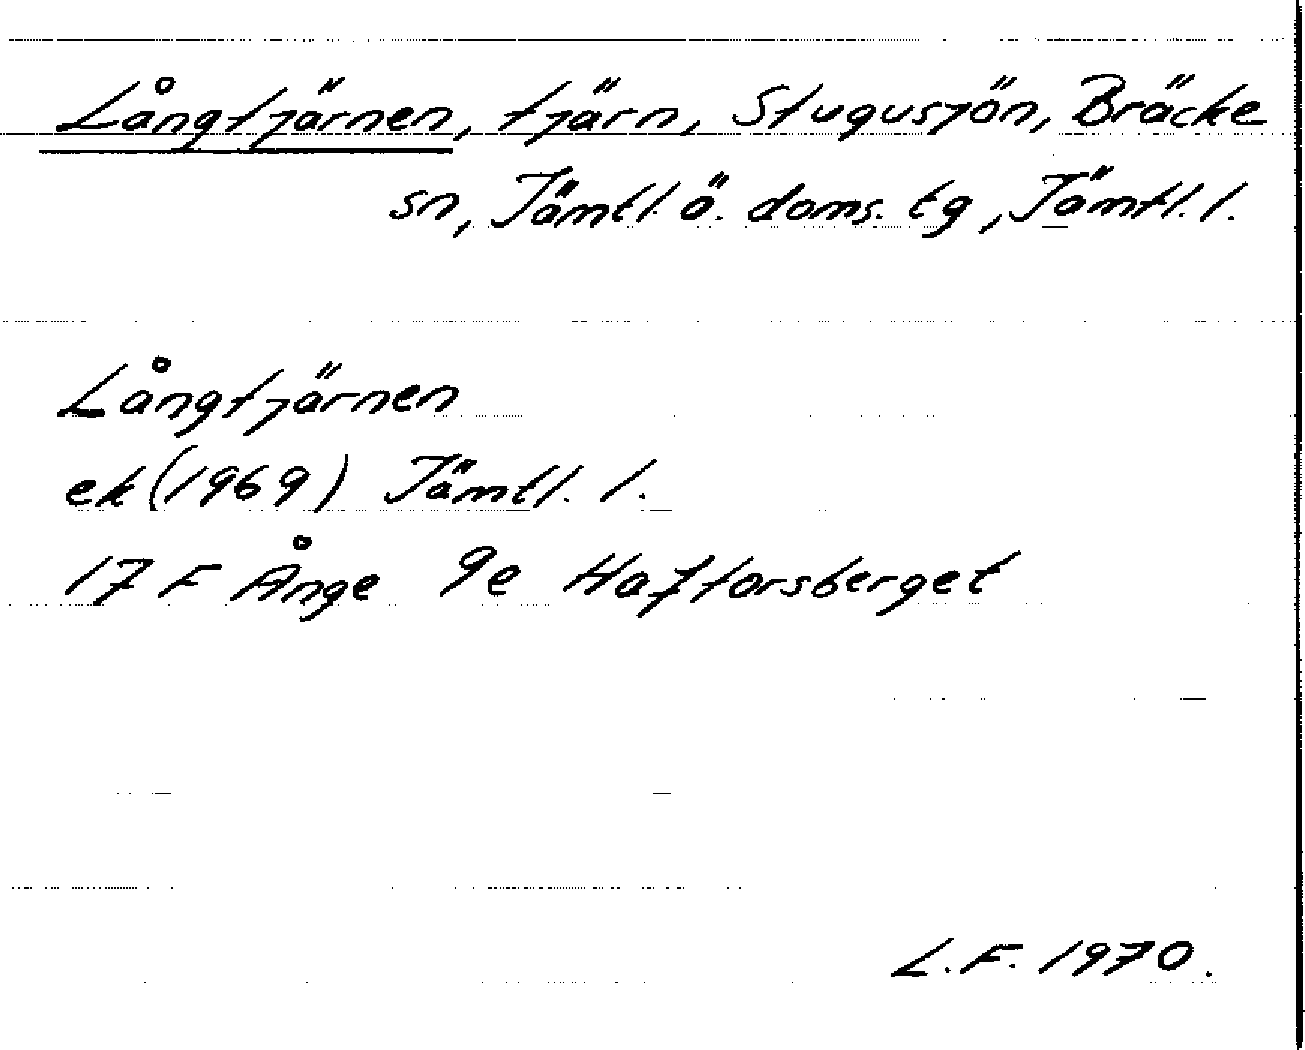 Långtjärnen, tjärn, Stugusjön, Bräcke
sn, Jämtl. ö. doms. tg, Jämtl. l.
Långtjärnen
ek (1969) Jämtl. l.
17 F Ånge 9e Hafforsberget
L.F. 1970.